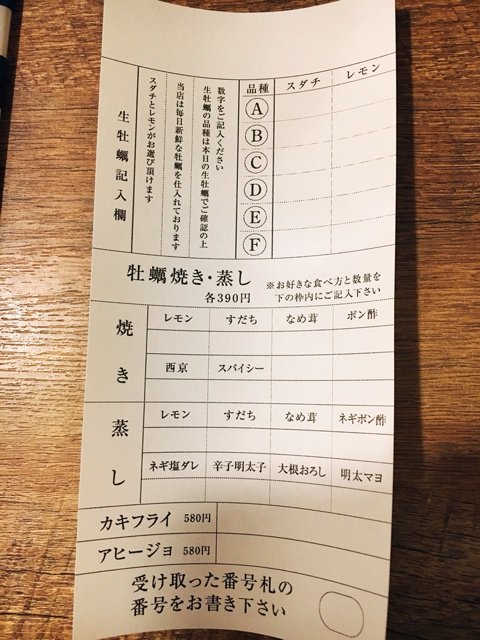 生牡蠣記入欄
数字をご記入ください
生牡蠣の品種は本日の生牡蠣でご確認の上
当店は毎日新鮮な牡蠣を仕入れております
スダチとレモンがお選び頂けます
品種 スダチ レモン
Ⓐ
Ⓑ
Ⓒ
Ⓓ
Ⓔ
Ⓕ
牡蠣焼き・蒸し
各390円
※お好きな食べ方と数量を
下の枠内にご記入下さい
焼き
レモン すだち なめ茸 ポン酢
西京 スパイシー
蒸し
レモン すだち なめ茸 ネギポン酢
ネギ塩ダレ 辛子明太子 大根おろし 明太マヨ
カキフライ 580円
アヒージョ 580円
受け取った番号札の
番号をお書き下さい